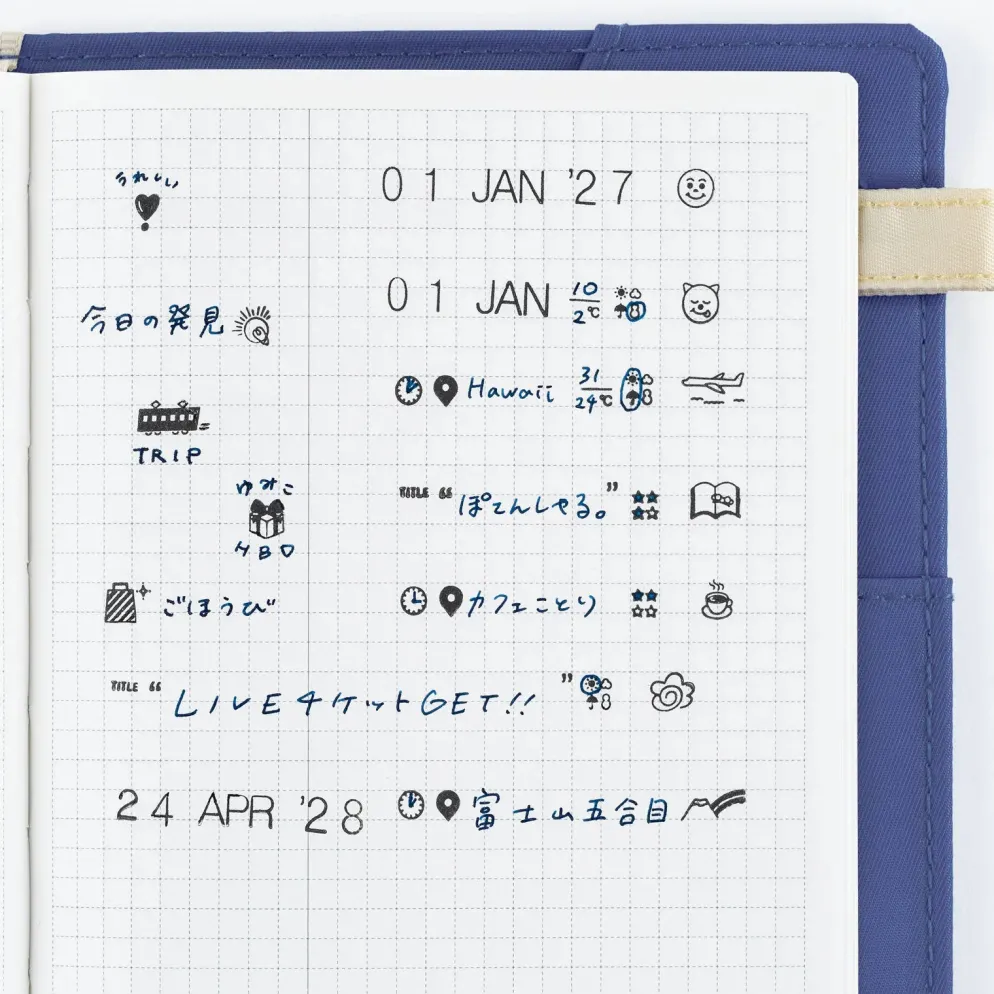 うれしい
01 JAN '27
今日の発見
01 JAN 10 2℃
Hawaii 31 24℃
TRIP
ゆみこ
TITLE “ぽてんしゃる。”
HBD
ごほうび
カフェことり
TITLE “LIVEチケットGET!!”
24 APR '28 富士山五合目